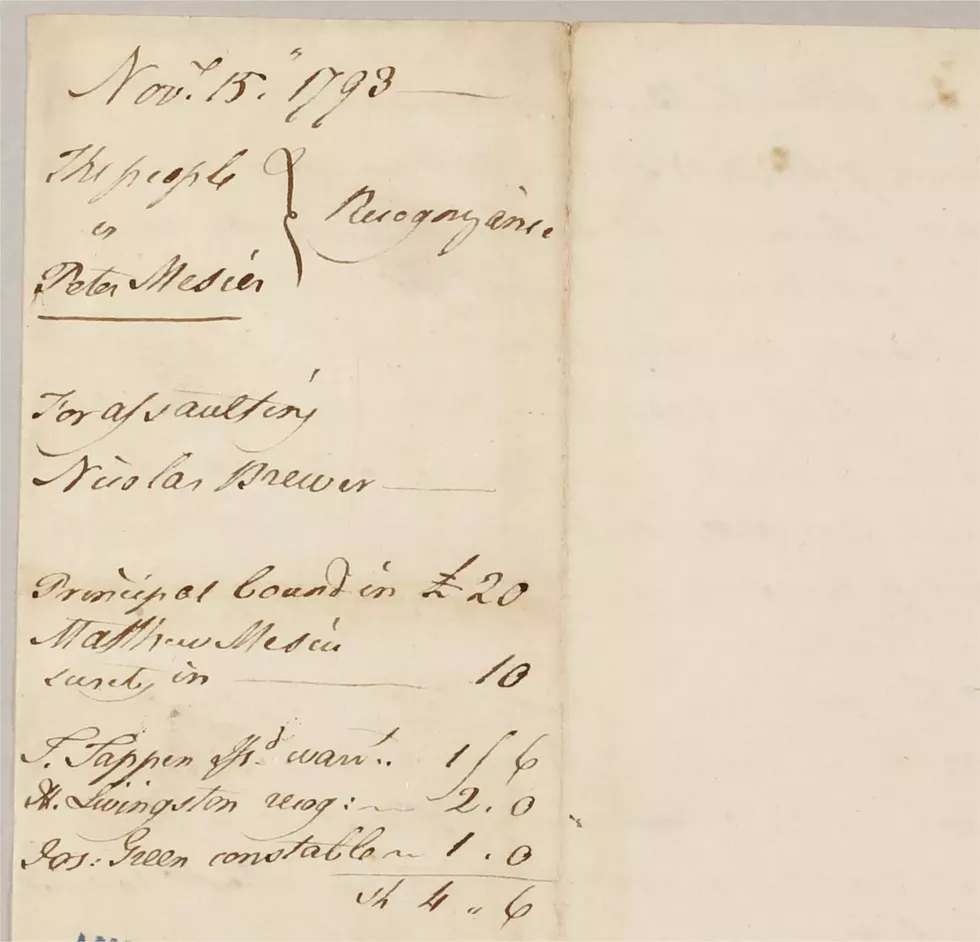 Novr. 15. 1793
The people
vs
Peter Mesier
Recognyance
For assaulting
Nicolas Brewer
Principal bound in £ 20
Matthew Mesier
surety in 10
T. Tappen Issd warrt. 1/6
H. Livingston recog: 2.0
Jos: Green constable 1.0
sh 4 " 6